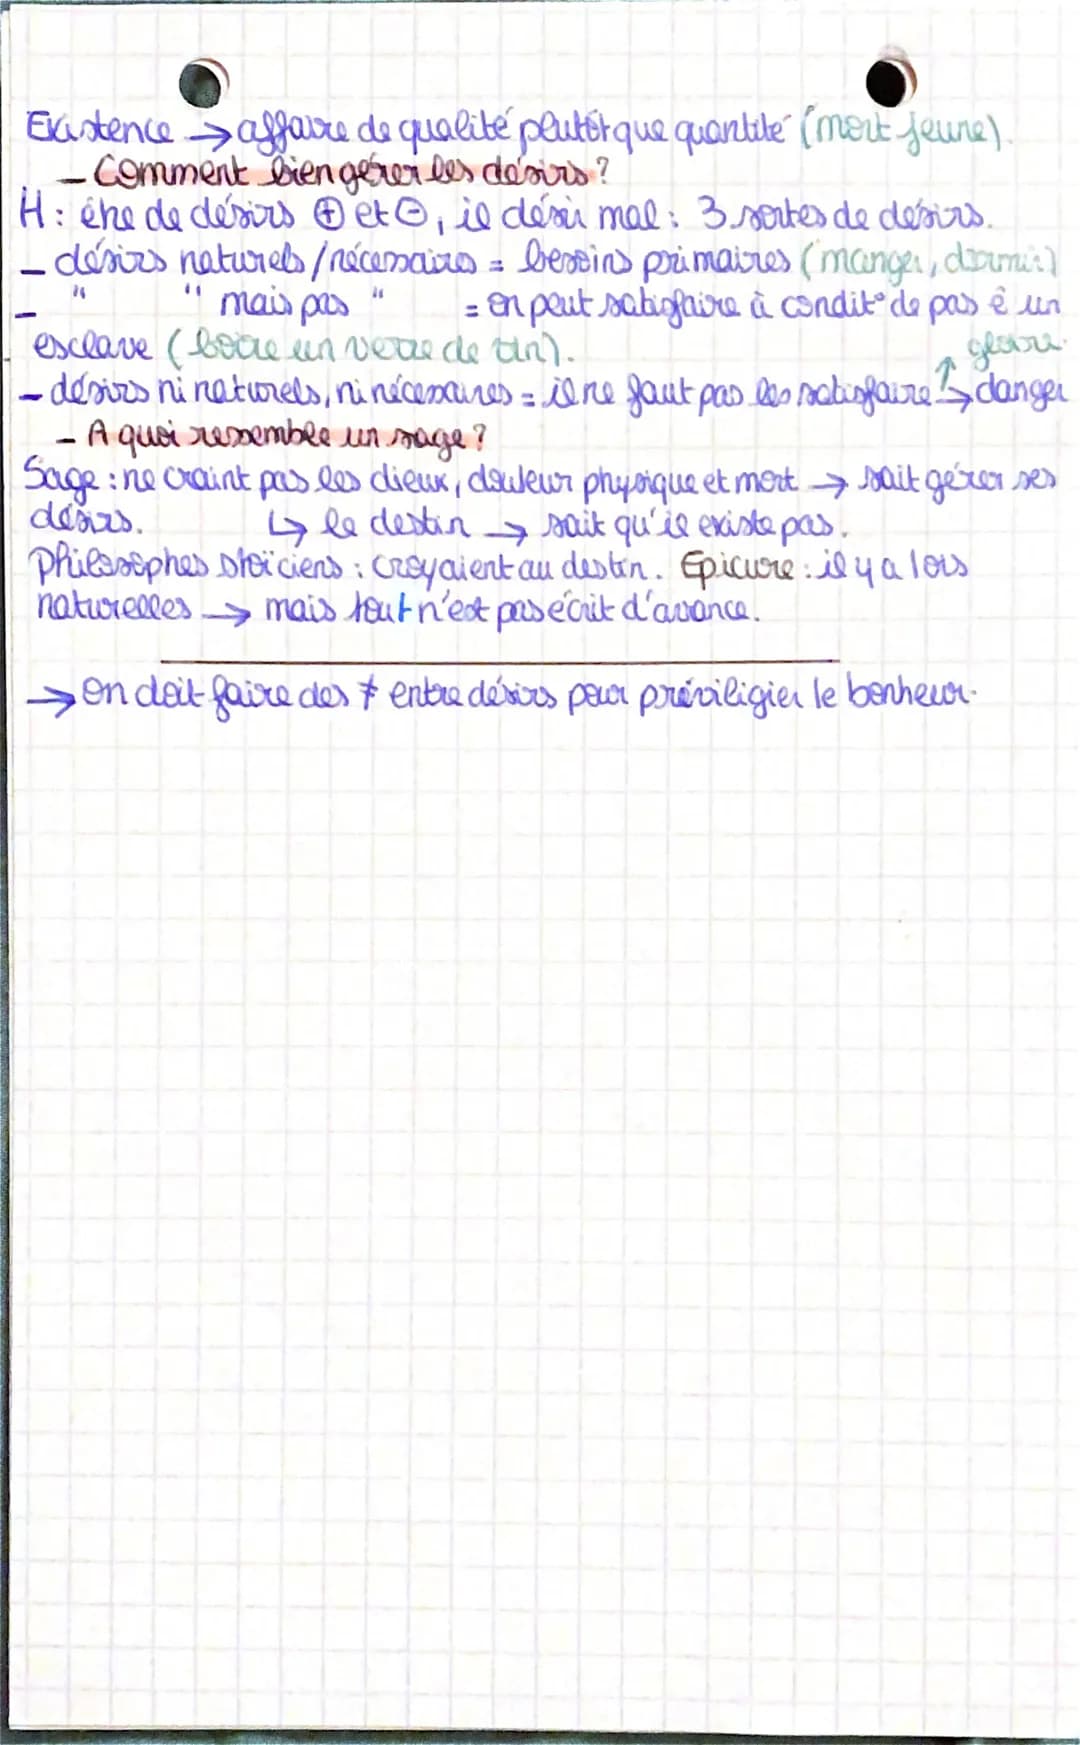 Existence → affaire de qualité plutôt que quantité (mort jeune).
- Comment bien gérer les désirs ?
H : être de désirs ⊕ et ⊖, il désir mal : 3 sortes de désirs.
- désirs naturels / nécessaires = besoins primaires (manger, dormir)
- " " mais pas " = on peut satisfaire à condit° de pas ê un
esclave (boire un verre de vin). gloire
- désirs ni naturels, ni nécessaires = il ne faut pas les satisfaire ! ↳ danger
- A quoi ressemble un sage ?
Sage : ne craint pas les dieux, douleur physique et mort → sait gérer ses
désirs. ↳ le destin → sait qu'il existe pas.
Philosophes stoïciens : croyaient au destin. Epicure : il y a lois
naturelles → mais tout n'est pas écrit d'avance.
→ On doit faire des ≠ entre désirs pour préviligier le bonheur.